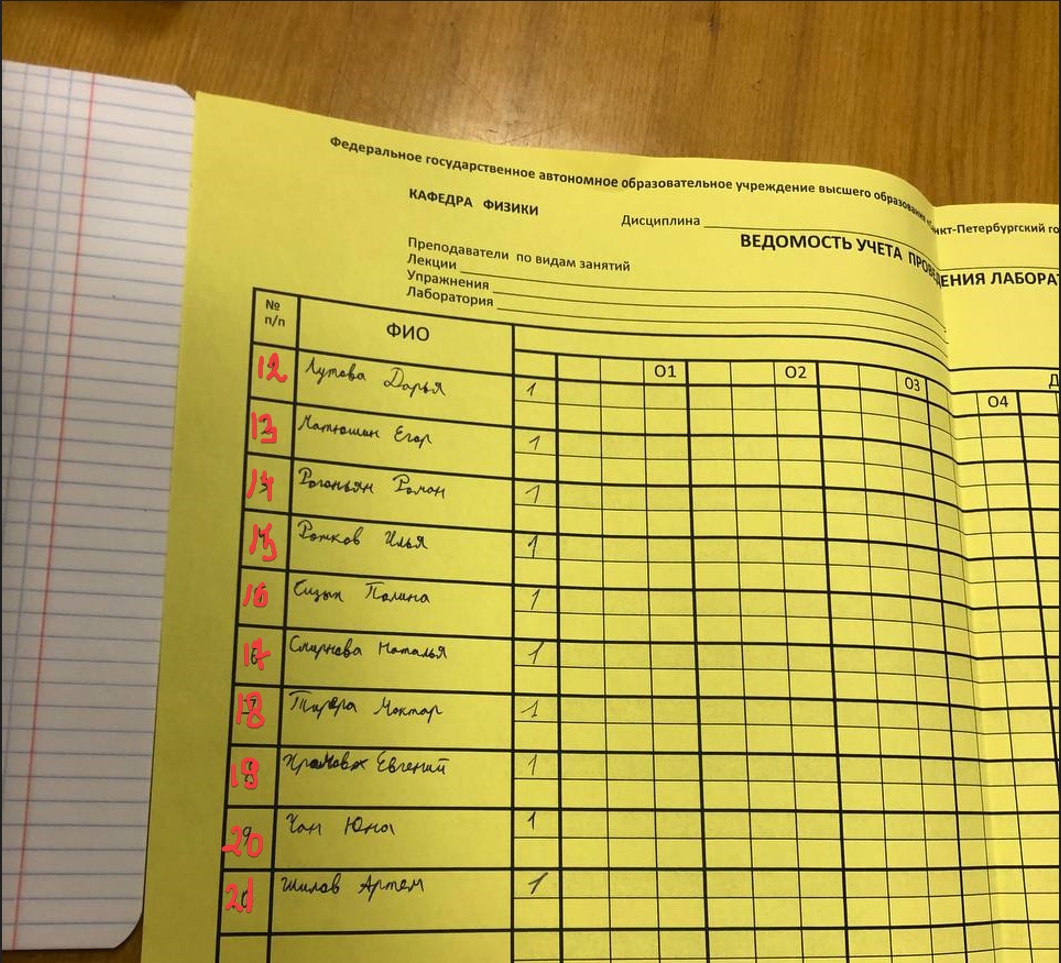 Федеральное государственное автономное образовательное учреждение высшего образования «Санкт-Петербургский го
КАФЕДРА ФИЗИКИ
Дисциплина
ВЕДОМОСТЬ УЧЕТА ПРОВЕДЕНИЯ ЛАБОРАТ
Преподаватели по видам занятий
Лекции
Упражнения
Лаборатория
№ п/п ФИО
Д
О1 О2 О3 О4
12 Лутова Дарья 1
13 Матюшин Егор 1
14 Роман 1
15 Рожков Илья 1
16 Сизых Полина 1
17 Смирнова Наталья 1
18 Моктар 1
19 Евгений 1
20 Чан Юна 1
21 Шилов Артем 1